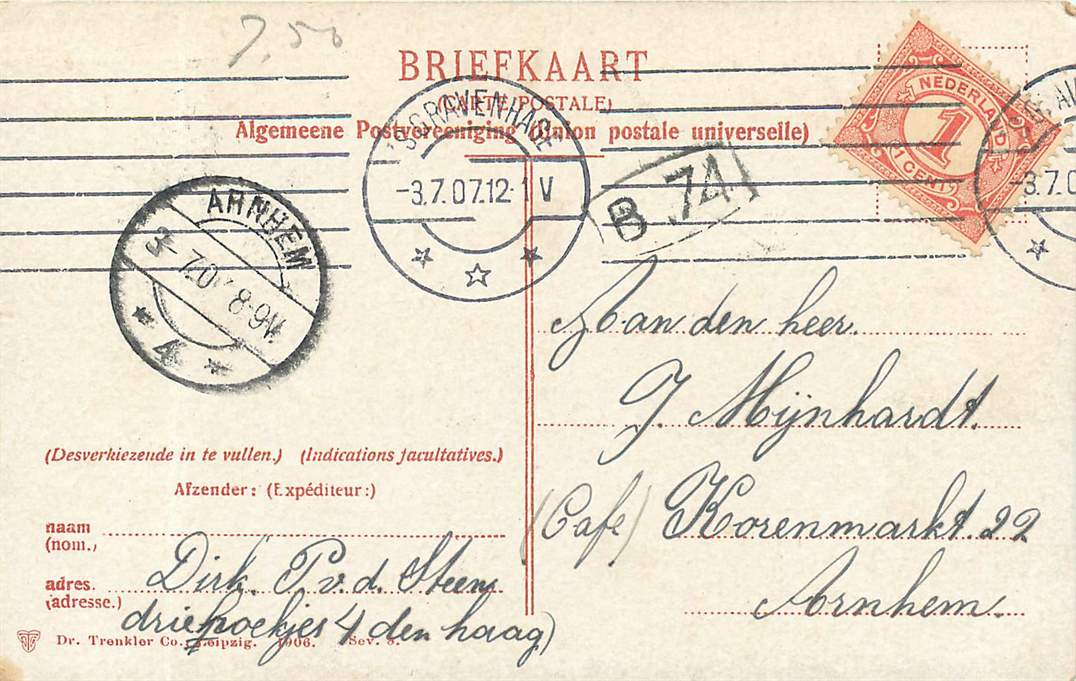 7,50
BRIEFKAART
(CARTE POSTALE)
Algemeene Postvereeniging (Union postale universelle)
'S GRAVENHAGE
-3.7.07.12-1 V
B 74
NEDERLAND
1
1 CENT
-3.7.0
ARNHEM
3-7.0 8-9V.
4
Aan den heer.
J. Mijnhardt.
(Café) Korenmarkt. 22
Arnhem.
(Desverkiezende in te vullen.) (Indications facultatives.)
Afzender: (Expéditeur:)
naam
(nom.)
adres.
(adresse.)
Dirk. P. v. d. Steen
driehoekjes 4 den haag)
Dr. Trenkler Co., Leipzig. 1906. Sev. 9.